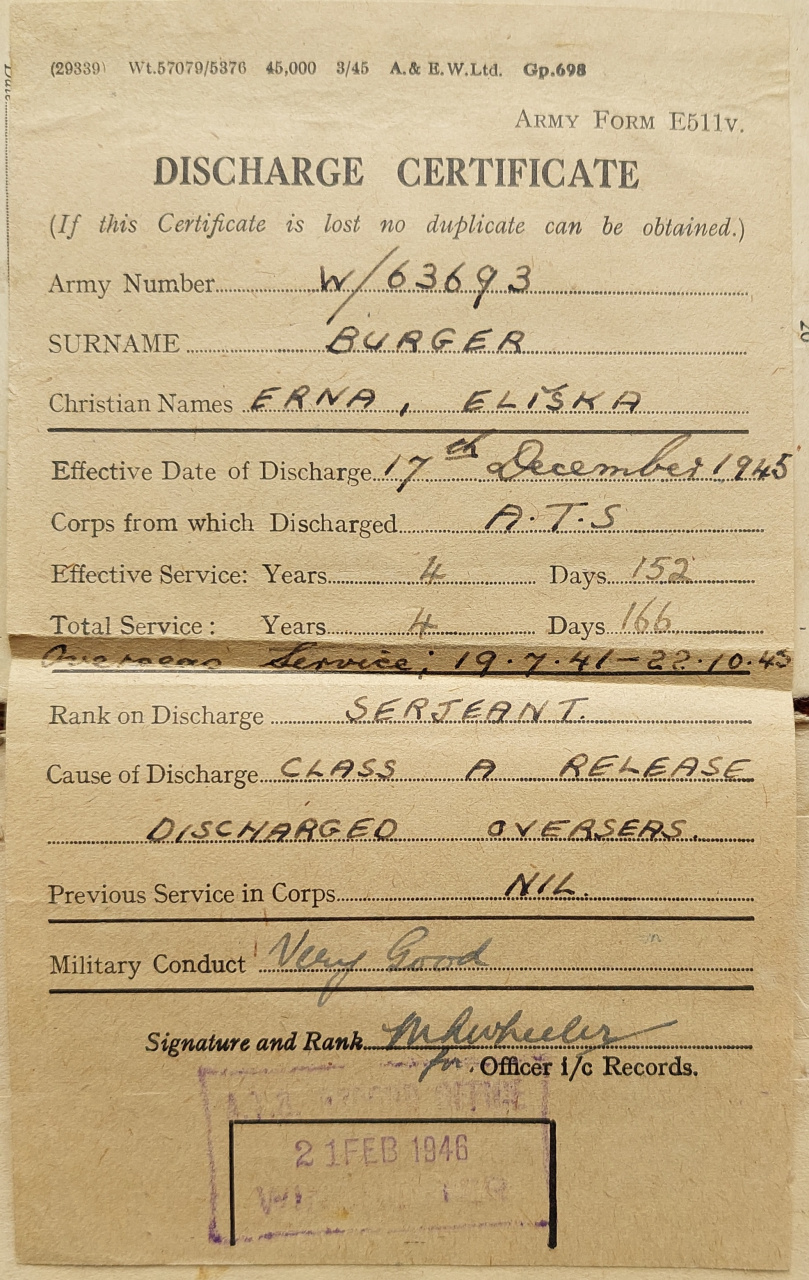 (29339) Wt.57079/5376 45,000 3/45 A.& E.W.Ltd. Gp.698
ARMY FORM E511v.
DISCHARGE CERTIFICATE
(If this Certificate is lost no duplicate can be obtained.)
Army Number W/63693
SURNAME BURGER
Christian Names ERNA, ELIŠKA
Effective Date of Discharge 17th December 1945
Corps from which Discharged A.T.S
Effective Service: Years 4 Days 152
Total Service: Years 4 Days 166
Overseas Service; 19.7.41-22.10.45
Rank on Discharge SERJEANT.
Cause of Discharge CLASS A RELEASE
DISCHARGED OVERSEAS.
Previous Service in Corps NIL.
Military Conduct Very Good
Signature and Rank Wheeler
for Officer i/c Records.
OFFICE
21 FEB 1946